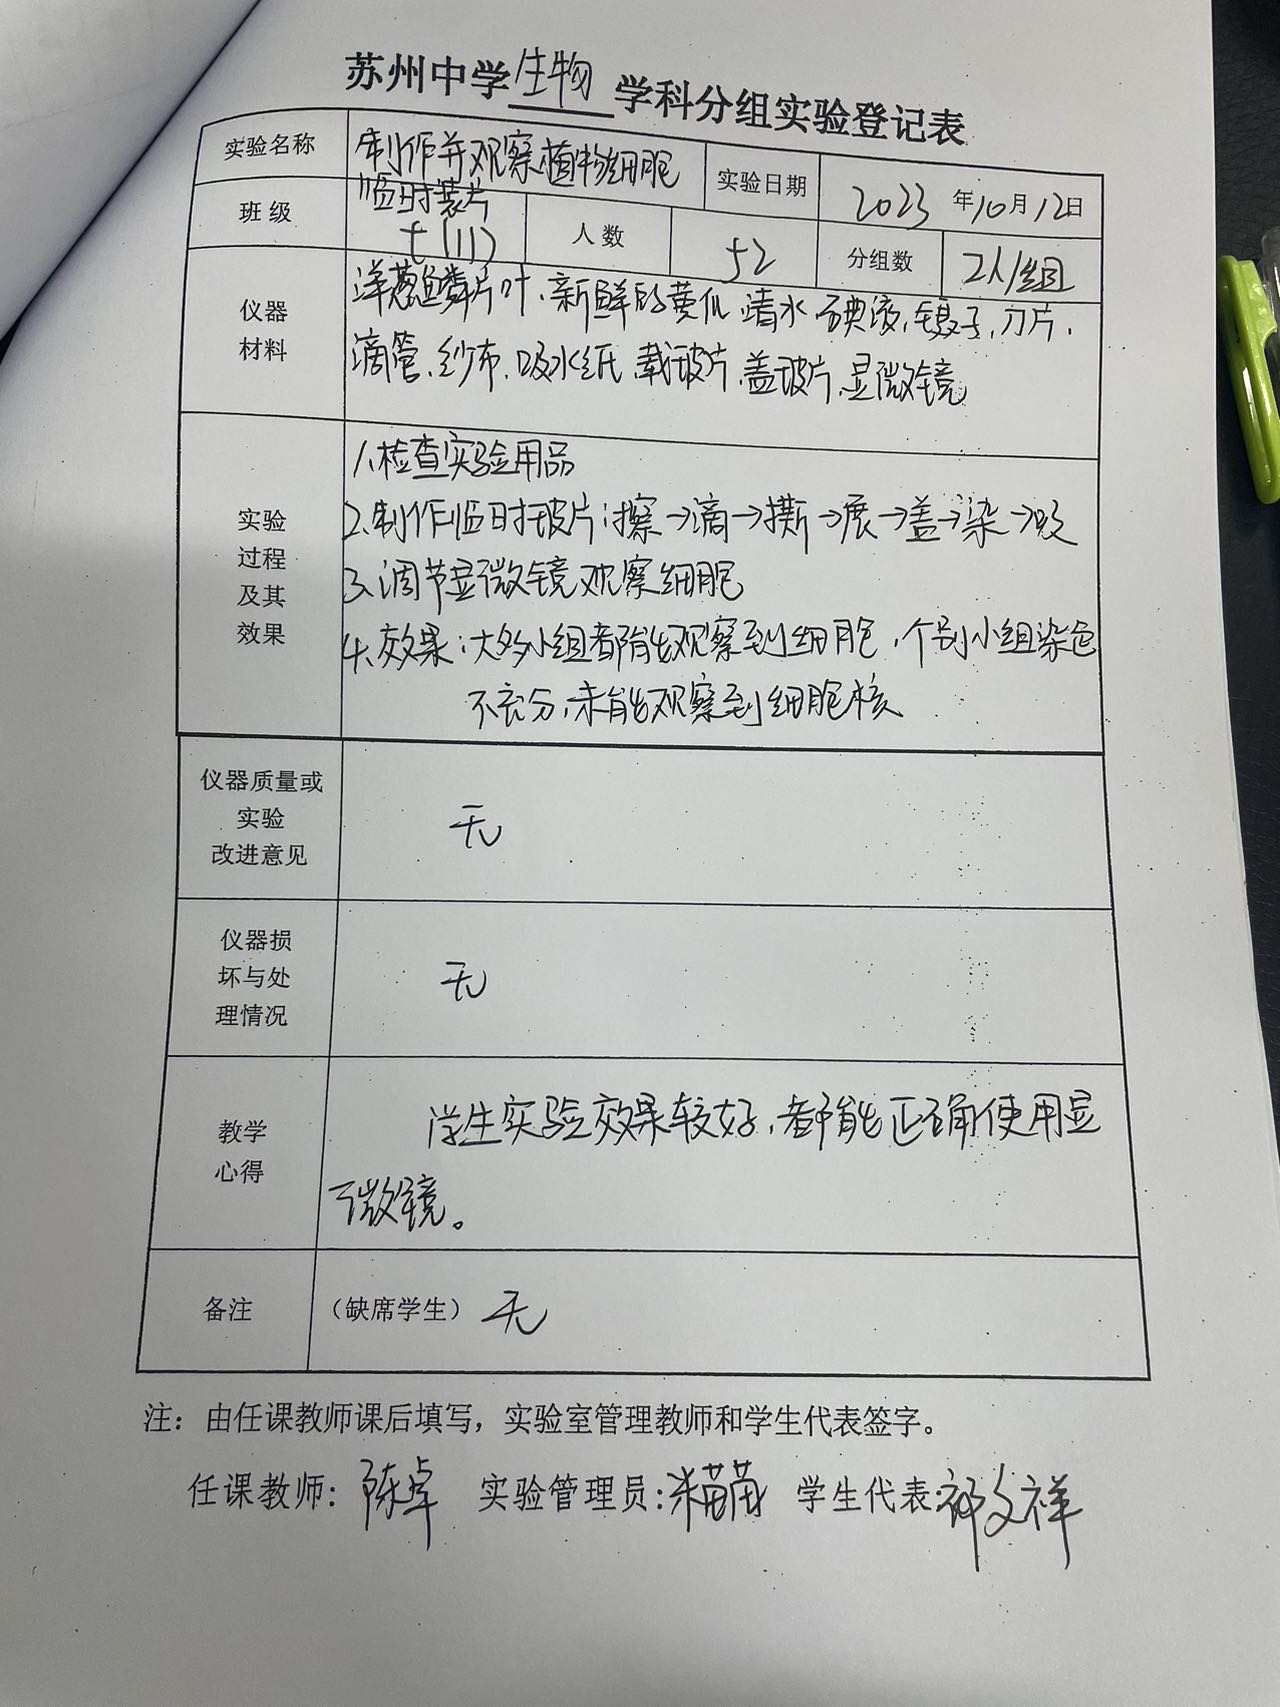 苏州中学 生物 学科分组实验登记表
实验名称 制作并观察植物细胞临时装片 实验日期 2023 年10月12日
班级 七(11) 人数 52 分组数 2人/组
仪器材料
洋葱鳞片叶、新鲜的黄瓜、清水、碘液、镊子、刀片、
滴管、纱布、吸水纸、载玻片、盖玻片、显微镜
实验过程及其效果
1、检查实验用品
2、制作临时玻片:擦→滴→撕→展→盖→染→吸
3、调节显微镜观察细胞
4、效果:大多小组都能观察到细胞,个别小组染色
不充分,未能观察到细胞核
仪器质量或实验改进意见 无
仪器损坏与处理情况 无
教学心得
学生实验效果较好,都能正确使用显
微镜。
备注 (缺席学生) 无
注:由任课教师课后填写,实验室管理教师和学生代表签字。
任课教师: 陈卓 实验管理员: 学生代表: 祁文祥